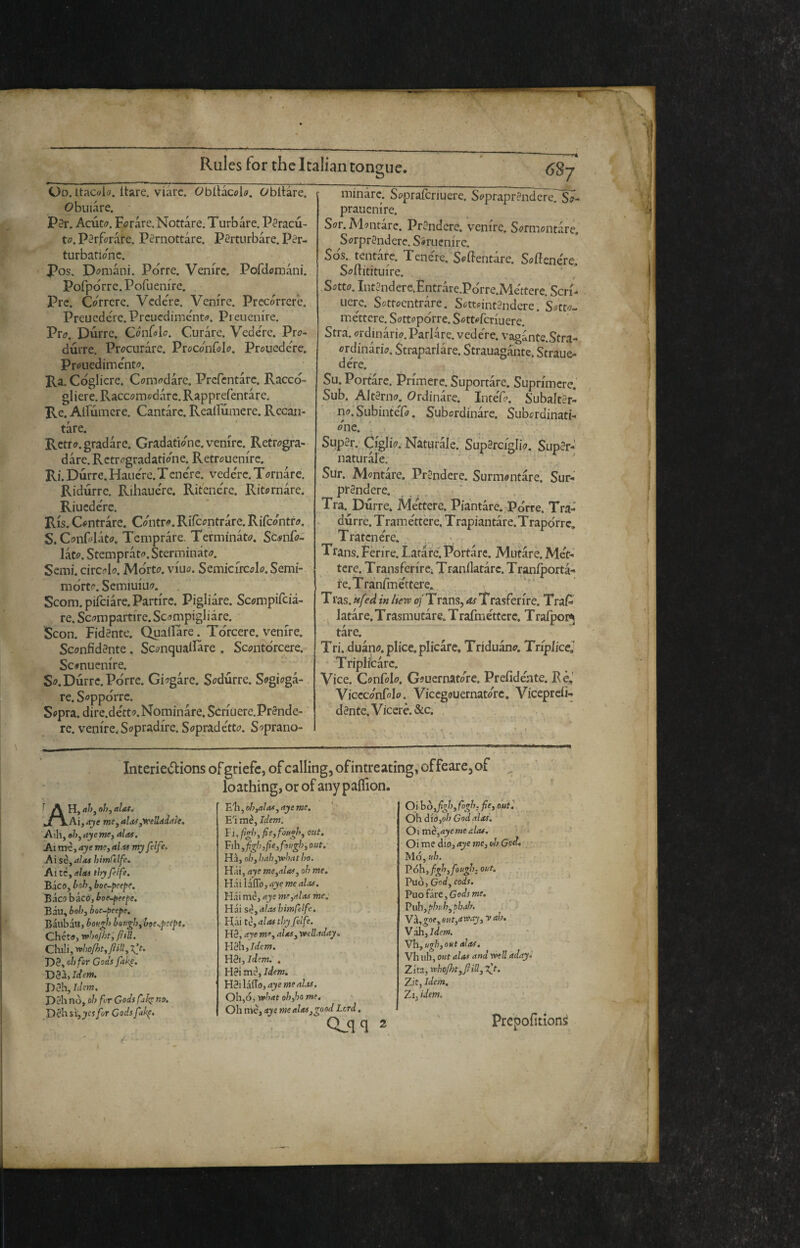 Rules for the Italian tongue. 687
Oo. Itacolo. Itare. viáre. Obítácolo. Obſtáre.
Obuiáre.
Pȝr. Acúto. Foráre. Nottáre. Turbáre. Pȝracú-
to. Pȝrforáre. Pȝrnottáre. Pȝrturbáre. Pȝr-
turbatióne.
Pos. Dománi. Pórre. Veníre. Poſdománi.
Poſpórre. Poſueníre.
Pre. Córrere. Vedére. Veníre. Precórrere.
Preuedére. Preuediménto. Preueníre.
Pro. Dúrre. Cónſolo. Curáre. Vedére. Pro-
dúrre. Procuráre. Procónſolo. Prouedére.
Prouediménto.
Ra. Cógliere. Comodáre. Preſentáre. Raccó-
gliere. Raccomodáre. Rappreſentáre.
Re. Aſſúmere. Cantáre. Reaſſúmere. Recan-
táre.
Retro. gradáre. Gradatióne. veníre. Retrogra-
dáre. Retrogradatióne. Retroueníre.
Ri. Dúrre. Hauére. Tenére. vedére. Tornáre.
Ridúrre. Rihauére. Ritenére. Ritornáre.
Riuedére.
Rís. Contráre. Cóntro. Riſcontráre. Riſcóntro.
S. Conſoláto. Tempráre. Termináto. Sconſo-
láto. Stempráto. Sterminàto.
Semi. círcolo. Mórto. víuo. Semicírcolo. Semi-
mórto. Semiuíuo.
Scom. piſciáre. Partíre. Pigliáre. Scompiſciá-
re. Scompartíre. Scompigliáre.
Scon. Fidȝnte. Quaſſáre. Tórcere. veníre.
Sconfidȝnte. Sconquaſſáre. Scontórcere.
Sconueníre.
So. Dúrre. Pórre. Giogáre. Sodúrre. Sogiogá-
re. Soppórre.
Sopra. díre. détto. Nomináre. Scríuere. Prȝnde-
re. veníre. Sopradíre. Sopradétto. Soprano-
mináre. Sopraſcríuere. Sopraprȝndere. So-
praueníre.
Sor. Montáre. Prȝndere. veníre. Sormontáre.
Sorprȝndere. Sorueníre.
Sós. tentáre. Tenére. Soſtentáre. Soſtenére.
Soſtituíre.
Sotto. Intȝndere. Entráre. Pórre. Méttere. Scrí-
uere. Sottoentráre. Sottointȝndere. Sotto-
méttere. Sottopórre. Sottoſcríuere.
Stra. ordinário. Parláre. vedére. vagánte. Stra-
ordinário. Straparláre. Strauagánte. Straue-
dére.
Su. Portáre. Prímere. Suportáre. Suprímere.
Sub. Altȝrno. Ordináre. Intéſo. Subaltȝr-
no. Subintéſo. Subordináre. Subordinati-
óne.
Supȝr. Cíglio. Naturále. Supȝrcíglio. Supȝr-
naturále.
Sur. Montáre. Prȝndere. Surmontáre. Sur-
prȝndere.
Tra. Dúrre. Méttere. Piantáre. Pórre. Tra-
dúrre. Traméttere. Trapiantáre. Trapórre.
Tratenére.
Trans. Feríre. Latáre. Portáre. Mutáre. Mét-
tere. Transferíre. Tranſlatáre. Tranſportá-
re. Tranſméttere.
Tras. uſed in liew of Trans, as Trasferíre. Traſ-
latáre. Trasmutáre. Traſméttere. Traſpor-
táre.
Tri. duáno. plíce. plicáre. Triduáno. Tríplice.
Triplicáre.
Vice. Cónſolo. Gouernatóre. Preſidénte. Rè.
Vicecónſolo. Vicegouernatóre. Vicepreſi-
dȝnte. Vicerè. &c.
Interiections of griefe, of calling, of intreating, of feare, of
loathing, or of any paſſion.
AH, ah, oh, alas.
Ai, aye me, alas, welladaie.
Aih, oh, aye me, alas.
Ai mè, aye me, alas my ſelfe.
Ai sè, alas himſelfe.
Ai tè, alas thy ſelfe.
Báco, boh, boe-peepe.
Báco báco, boe-peepe.
Báu, boh, boe-peepe.
Báubáu, bough bough, boe-peepe.
Chéto, whoſht, ſtill.
Chíli, whoſht, ſtill, &c.
Dȝ, oh for Gods ſake.
Dȝà, Idem.
Dȝh, Idem.
Dȝh nò, oh for Gods ſake no.
Dȝh sì, yes for Gods ſake.
E'h, oh, alas, aye me.
E'i mè, Idem.
Fi, figh, fie, fough, out.
Fih, figh, fie, fough, out.
Hà, oh, hah, what ho.
Hái, aye me, alas, oh me.
Hái láſſo, aye me alas.
Hái mè, aye me, alas me.
Hái sè, alas himſelfe.
Hái tè, alas thy ſelfe.
Hȝ, aye me, alas, welladay.
Hȝh, Idem.
Hȝi, Idem.
Hȝi mè, Idem.
Hȝi láſſo, aye me alas.
Oh, ó, what oh, ho me.
Oh mè, aye me alas, good Lord.
Oi bò, figh, fogh, fie, out.
Oh dío, oh God alas.
Oi mè, aye me alas.
Oi me dio, aye me, oh God.
Mó, uh.
Póh, figh, fough, out.
Può, God, cods.
Puo fáre, Gods me.
Puh, phuh, phah.
Và, goe, out, away, v ah.
Váh, Idem.
Vh, ugh, out alas.
Vh uh, out alas and well aday.
Zíta, whoſht, ſtill, &c.
Zit, Idem.
Zi, idem.
Qqq 2
Prepoſitions